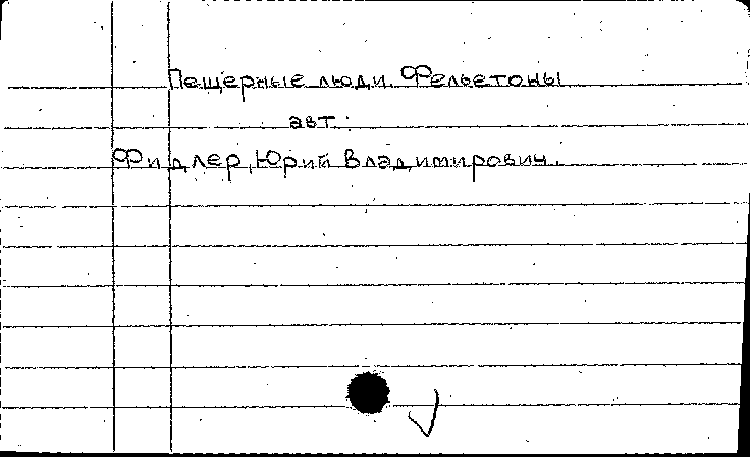 Пещерные люди. Фельетоны
авт.
Фидлер, Юрий Владимирович.